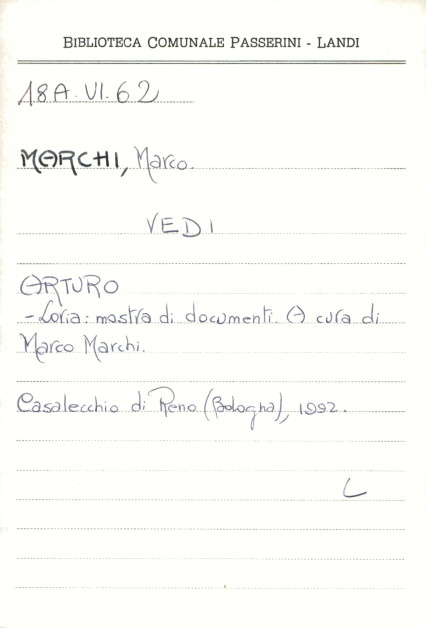 BIBLIOTECA COMUNALE PASSERINI - LANDI
18A.VI.62
MARCHI, Marco.
VEDI
ARTURO
- Loria: mostra di documenti. A cura di
Marco Marchi.
Casalecchio di Reno (Bologna), 1992.
L